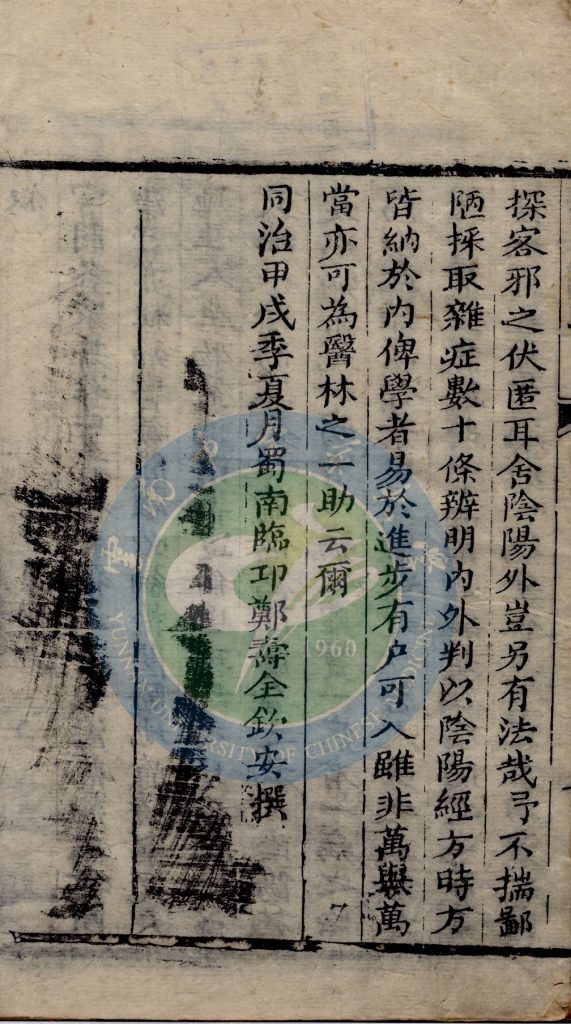 探客邪之伏匿耳舍陰陽外豈另有法哉予不揣鄙
陋採取雜症數十條辨明內外判以陰陽經方時方
皆納於內俾學者易於進步有戶可入雖非萬舉萬
當亦可為醫林之一助云爾
同治甲戌季夏月蜀南臨邛鄭壽全欽安撰
7
YUNNAN UNIVERSITY OF CHINESE MEDICINE
1960